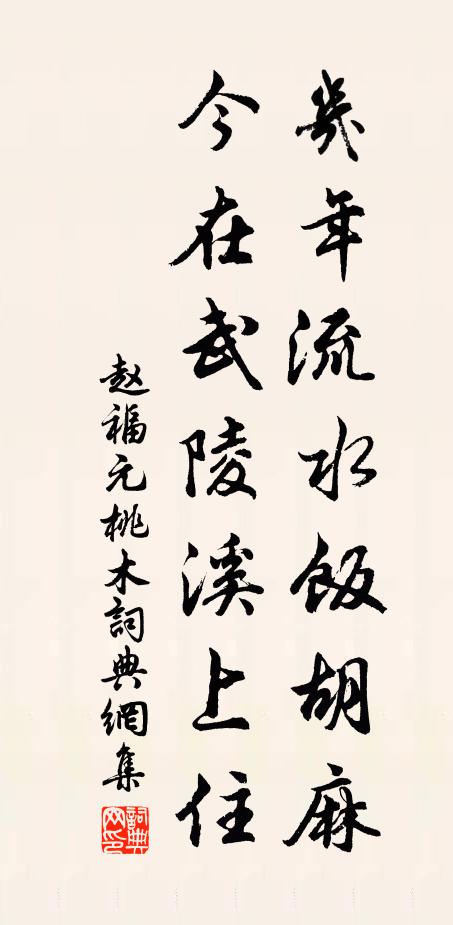 幾年流水飯胡麻
今在武陵溪上住
赵福元桃木詞典網集
詞典網印